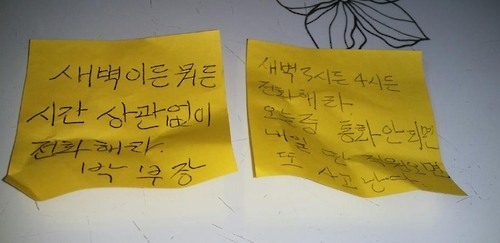 새벽이든 뭐든
시간 상관없이
전화해라.
박 부장
새벽 3시든 4시든
전화해라
오늘 중 통화안되면
내일 또
사고 난다